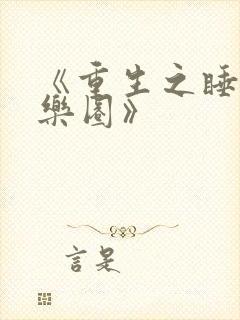 《重生之睡
樂園》
言是